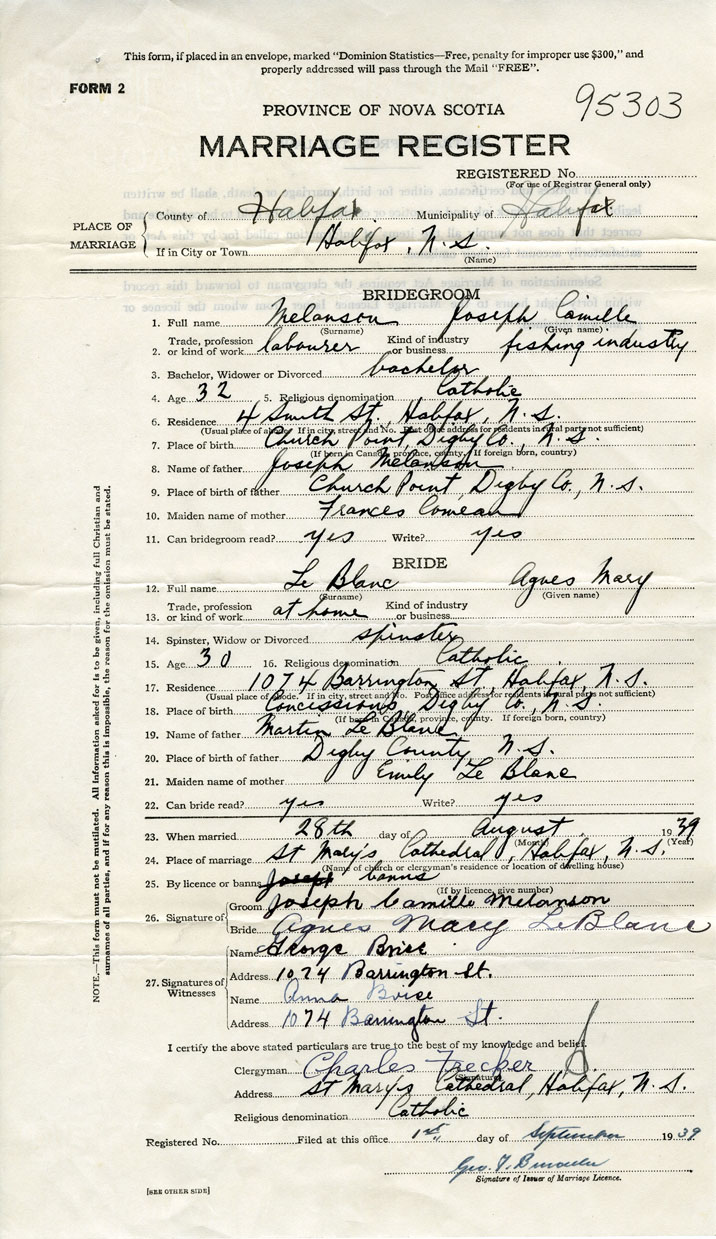 This form, if placed in an envelope, marked "Dominion Statistics—Free, penalty for improper use $300," and
properly addressed will pass through the Mail "FREE".
FORM 2
95303
PROVINCE OF NOVA SCOTIA
MARRIAGE REGISTER
REGISTERED No.
(For use of Registrar General only)
PLACE OF MARRIAGE
County of Halifax Municipality of Halifax
If in City or Town Halifax, N.S.
(Name)
BRIDEGROOM
1. Full name Melanson Joseph Camille
(Surname) (Given name)
2. Trade, profession or kind of work labourer Kind of industry or business fishing industry
3. Bachelor, Widower or Divorced bachelor
4. Age 32 5. Religious denomination Catholic
6. Residence 4 Smith St. Halifax, N.S.
(Usual place of abode. If in city, street and No. Post office address for residents in rural parts not sufficient)
7. Place of birth Church Point, Digby Co., N.S.
(If born in Canada, province, county. If foreign born, country)
8. Name of father Joseph Melanson
9. Place of birth of father Church Point, Digby Co., N.S.
10. Maiden name of mother Frances Comeau
11. Can bridegroom read? yes Write? yes
BRIDE
12. Full name Le Blanc Agnes Mary
(Surname) (Given name)
13. Trade, profession or kind of work at home Kind of industry or business
14. Spinster, Widow or Divorced spinster
15. Age 30 16. Religious denomination Catholic
17. Residence 1074 Barrington St, Halifax, N.S.
(Usual place of abode. If in city, street and No. Post office address for residents in rural parts not sufficient)
18. Place of birth Concessions, Digby Co., N.S.
(If born in Canada, province, county. If foreign born, country)
19. Name of father Martin Le Blanc
20. Place of birth of father Digby County, N.S.
21. Maiden name of mother Emily Le Blanc
22. Can bride read? yes Write? yes
23. When married 28th day of August 1939
(Month) (Year)
24. Place of marriage St Mary's Cathedral, Halifax, N.S.
(Name of church or clergyman's residence or location of dwelling house)
25. By licence or banns banns
(If by licence, give number)
26. Signature of
Groom Joseph Camille Melanson
Bride Agnes Mary LeBlanc
27. Signatures of Witnesses
Name George Brise
Address 1074 Barrington St.
Name Anna Boise
Address 1074 Barrington St.
I certify the above stated particulars are true to the best of my knowledge and belief.
Clergyman Charles Frecker
(Signature)
Address St Mary's Cathedral, Halifax, N.S.
Religious denomination Catholic
Registered No. Filed at this office 1st day of September 1939
Geo. F.
Signature of Issuer of Marriage Licence.
[SEE OTHER SIDE]
NOTE.—This form must not be mutilated. All information asked for is to be given, including full Christian and
surnames of all parties, and if for any reason this is impossible, the reason for the omission must be stated.